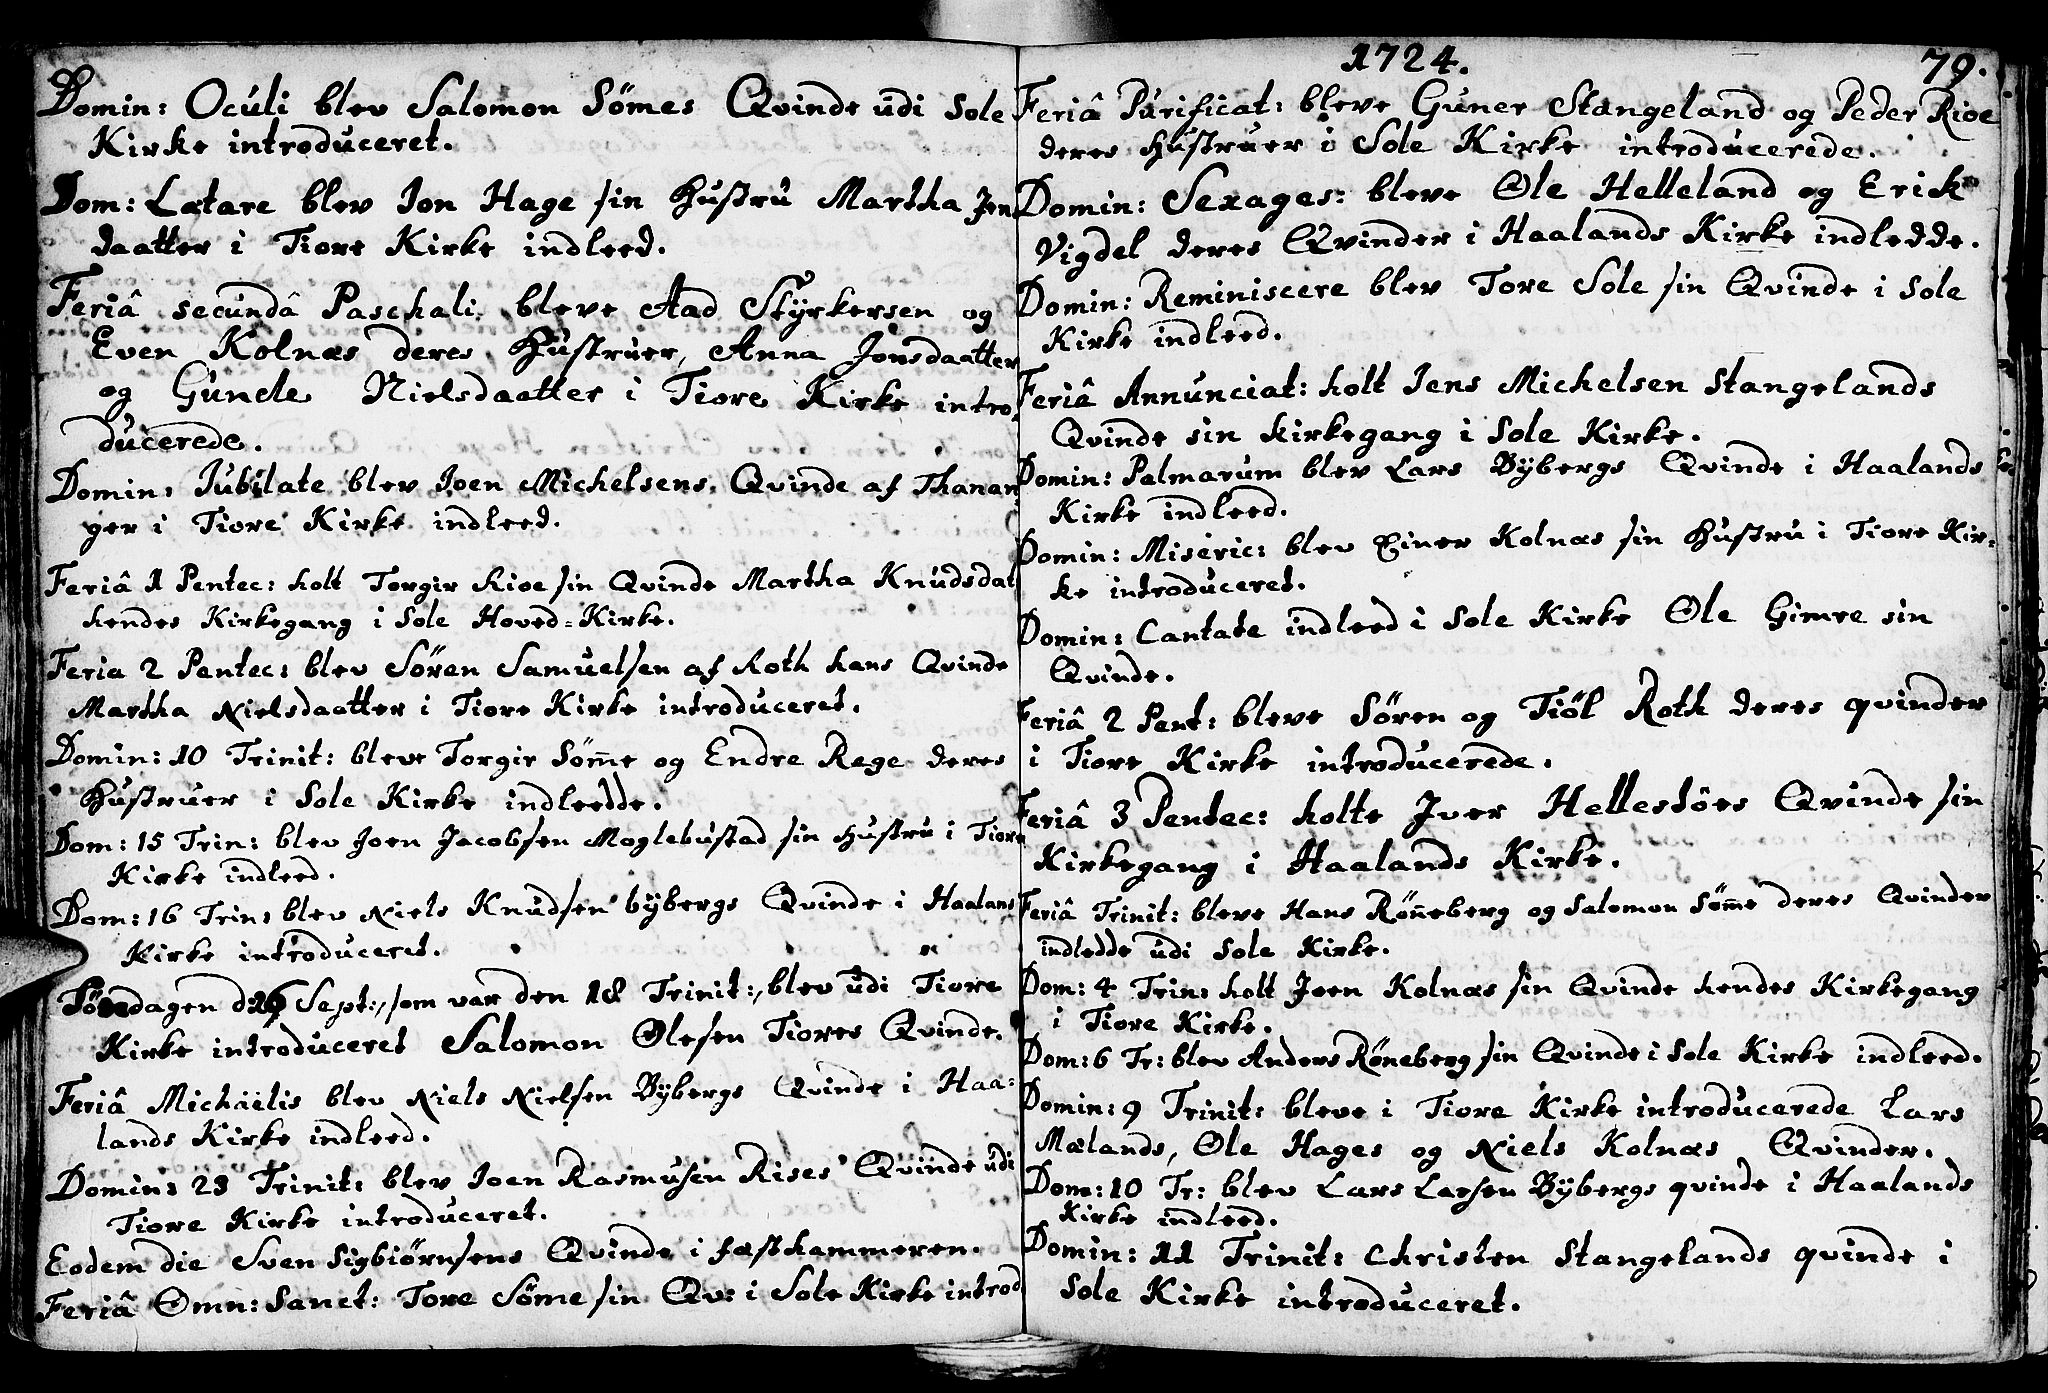 Domin: Oculi blev Salomon Sömes Qvinde udi Sole
Kirke introduceret.
Dom: Lætare blev Jon Hage sin Hustru Martha Jens
daatter i Tiore Kirke indleed.
Feriâ secundâ Paschali bleve Aad Styrkersen og
Even Kolnæs deres Hustruer, Anna Jonsdaatter
og Gunele Nielsdaatter i Tiore Kirke intro-
ducerede.
Domin: Jubilate blev Joen Michelsens Qvinde af Thanan-
ger i Tiore Kirke indleed.
Feriâ 1 Pentec: holt Torgir Rioe sin Qvinde Martha Knudsdat
hendes Kirkegang i Sole Hoved-Kirke.
Feria 2 Pentec: blev Sören Samuelsen af Roth hans Qvinde
Martha Nielsdaatter i Tiore Kirke introduceret.
Domin: 10 Trinit: bleve Torgir Söm̄e og Endre Rege deres
Hustruer i Sole Kirke indleedde.
Dom: 15 Trin: blev Joen Jacobsen Moglebustad sin Hustru i Tiore
Kirke indleed.
Dom: 16 Trin: blev Niels Knudsen bÿbergs Qvinde i Haalans
Kirke introduceret.
Söndagen d. 26 Sept:, som var den 18 Trinit:, blev udi Tiore
Kirke introduceret Salomon Olesen Tiores Qvinde.
Feriâ Michaelis blev Niels Nielsen Bÿbergs Qvinde i Haa-
lands Kirke indleed.
Domin: 23 Trinit: blev Joen Rasmusen Rises Qvinde udi
Tiore Kirke introduceret.
Eodem die Sven Sigbiörnsens Qvinde i fæsthammeren.
Feriâ Omn: Sanct: Tore Söme sin Qv: i Sole Kirke introd
1724. 79.
Feriâ Purificat: bleve Guner Stangeland og Peder Rioe
deres Hustruer i Sole Kirke introducerede.
Domin: Sexages: bleve Ole Helleland og Erick
Vigdel deres Qvinder i Haalands Kirke indledde.
Domin: Reminiscere blev Tore Sole sin Qvinde i Sole
Kirke indleed.
Feriâ Annunciat: holt Jens Michelsen Stangelands
Qvinde sin kirkegang i Sole Kirke.
Domin: Palmarum blev Lars Bÿbergs Qvinde i Haalands
Kirke indleed.
Domin: Miseric: blev Einer Kolnæs sin Hustru i Tiore Kir-
ke introduceret.
Domin: Cantate indleed i Sole Kirke Ole Gimre sin
Qvinde.
Feriâ 2 Pent: bleve Søren og Tiøl Roth deres qvinder
i Tiore Kirke introducerede.
Feriâ 3 Pentec: holte Iver Hellestöes Qvinde sin
Kirkegang i Haalands Kirke.
Feriâ Trinit: bleve Hans Røn̄eberg og Salomon Söm̄e deres Qvinder
indledde udi Sole Kirke.
Dom: 4 Trin: holt Joen Kolnæs sin Qvinde hendes Kirkegang
i Tiore Kirke.
Dom: 6 Tr: blev Anders Röneberg sin Qvinde i Sole Kirke indleed.
Domin: 9 Trinit: bleve i Tiore Kirke introducerede Lars
Mælands, Ole Hages og Niels Kolnæs Qvinder.
Dom: 10 Tr: blev Lars Larsen Bÿbergs qvinde i Haalands
Kirke indleed.
Domin: 11 Trinit: Christen Stangelands qvinde i
Sole Kirke introduceret.